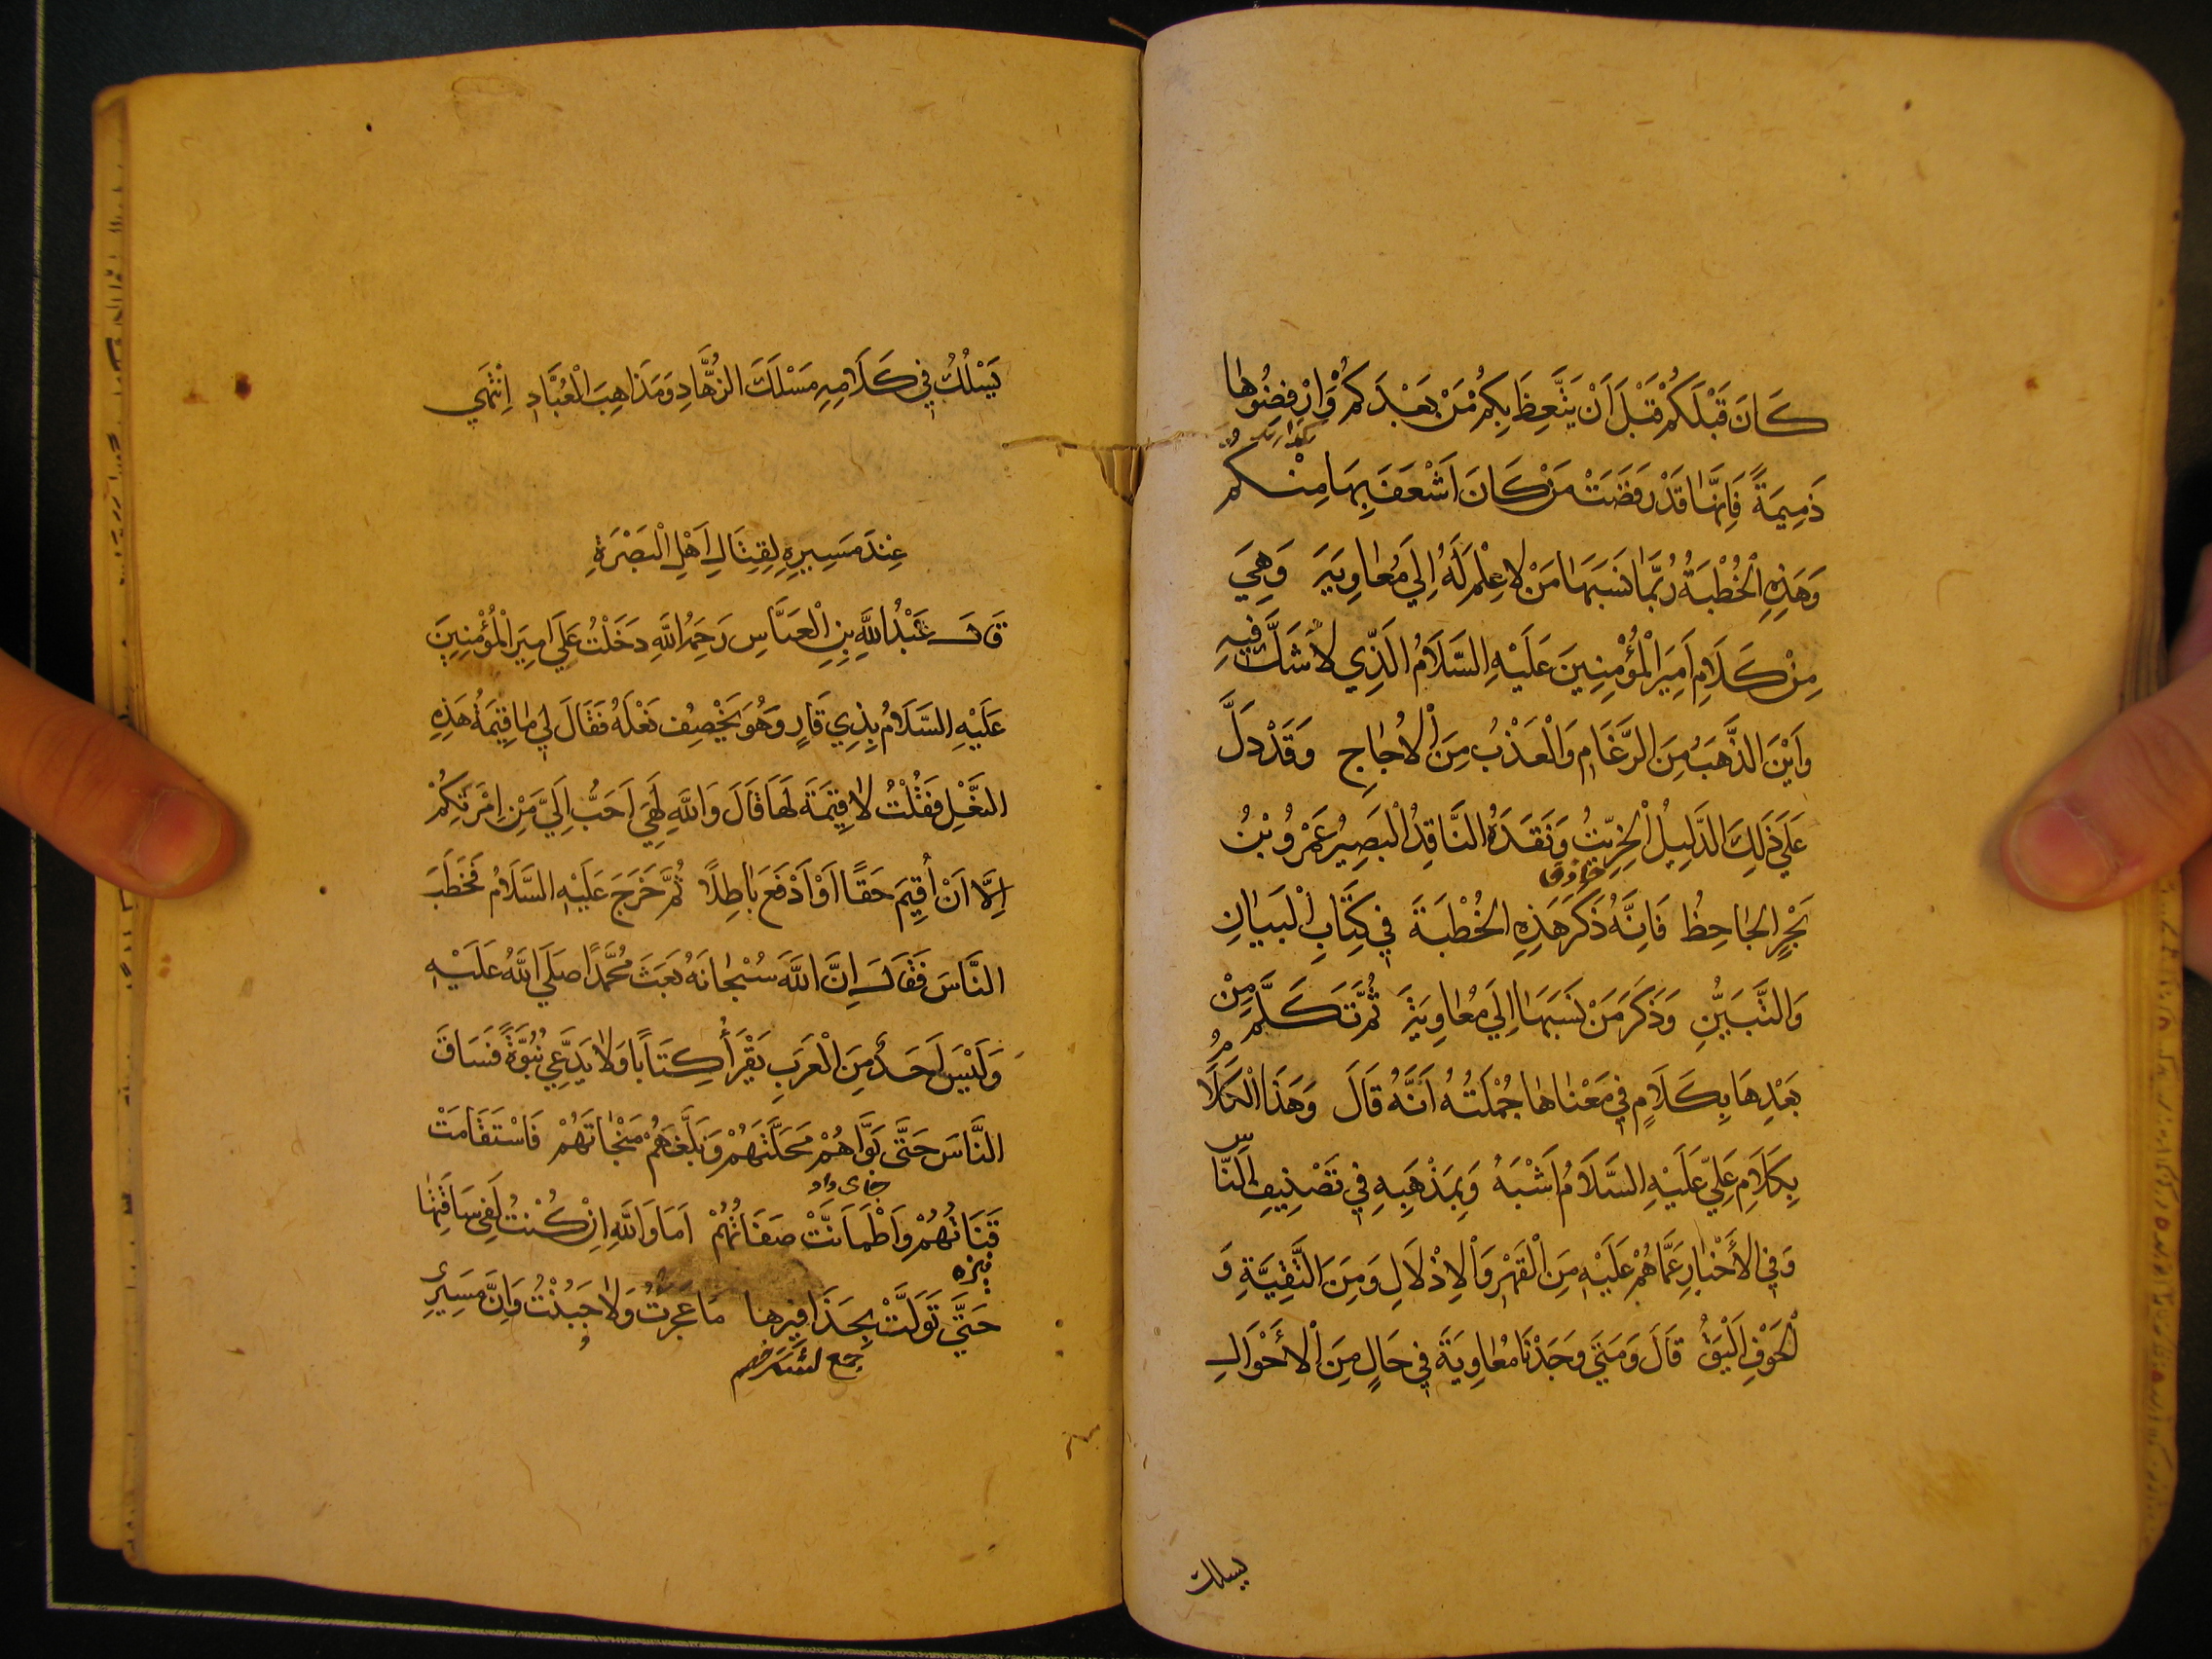 كَانَ قَبْلَكُمْ قَبْلَ اَنْ يَتَّعِظَ بِكُمْ مَنْ بَعْدَكُمْ وَارْفِضُوهَا
ذَمِيمَةً فَاِنَّهَا قَدْ رَفَضَتْ مَنْ كَانَ اَشْعَفَ بِهَا مِنْكُمْ
وَهَذِهِ الْخُطْبَةُ رُبَّمَا نَسَبَهَا مَنْ لَا عِلْمَ لَهُ اِلَي مُعَاوِيَةَ وَهِيَ
مِنْ كَلَامِ اَمِيرِ الْمُؤْمِنِينَ عَلَيْهِ السَّلَامُ الَّذِي لَا شَكَّ فِيهِ
وَاَيْنَ الذَّهَبُ مِنَ الرَّغَامِ وَالْعَذْبُ مِنَ الْاُجَاجِ وَقَدْ دَلَّ
عَلَي ذَلِكَ الدَّلِيلُ الْخِرِّيتُ وَنَقَدَهُ النَّاقِدُ الْبَصِيرُ عَمْرُو بْنُ
بَحْرٍ الجَاحِظُ فَاِنَّهُ ذَكَرَ هَذِهِ الخُطْبَةَ فِي كِتَابِ الْبَيَانِ
وَالتَّبَيُّنِ وَذَكَرَ مَنْ نَسَبَهَا اِلَي مُعَاوِيَةَ ثُمَّ تَكَلَّمَ مِنْ
بَعْدِهَا بِكَلَامٍ فِي مَعْنَاهَا جُمْلَتُهُ اَنَّهُ قَالَ وَهَذَا الْكَلَامُ
بِكَلَامِ عَلِيٍّ عَلَيْهِ السَّلَامُ اَشْبَهُ وَبِمَذْهَبِهِ فِي تَصْنِيفِ النَّاسِ
وَفِي الْاَخْبَارِ عَمَّا هُمْ عَلَيْهِ مِنَ الْقَهْرِ وَالْاِذْلَالِ وَمِنَ التَّقِيَّةِ وَ
الْخَوْفِ اَلْيَقُ قَالَ وَمَتَي وَجَدْنَا مُعَاوِيَةَ فِي حَالٍ مِنَ الْاَحْوَالِ
يسلك
يَسْلُكُ فِي كَلَامِهِ مَسْلَكَ الزُّهَّادِ وَمَذَاهِبَ الْعُبَّادِ اِنْتَهَي
عِنْدَ مَسِيرِهِ لِقِتَالِ اَهْلِ الْبَصْرَةِ
قَالَ عَبْدُ اللَّهِ بِنِ الْعَبَّاسِ رَحِمَهُ اللَّهِ دَخَلْتُ عَلَي اَمِيرِ الْمُؤْمِنِينَ
عَلَيْهِ السَّلَامُ بِذِي قَارٍ وَهُوَ يَخْصِفُ نَعْلَهُ فَقَالَ لِي مَا قِيمَةُ هَذِهِ
النَّعْلِ فَقُلْتُ لَا قِيمَةَ لَهَا قَالَ وَاللَّهِ لَهِيَ اَحَبُّ اِلَيَّ مِنْ اِمْرَتِكُمْ
اِلَّا اَنْ اُقِيمَ حَقًا اَوْ اَدْفَعَ بَاطِلًا ثُمَّ خَرَجَ عَلَيْهِ السَّلَامُ فَخَطَبَ
النَّاسَ فَقَالَ اِنَّ اللَّهَ سُبْحَانَهُ بَعَثَ مُحَمَّدًا صَلَي اللَّهُ عَلَيْهِ
وَلَيْسَ اَحَدٌ مِنَ الْعَرَبِ يَقْرَأُ كِتَابًا وَلَا يَدَّعِي نُبُوَّةً فَسَاقَ
النَّاسَ حَتَّي بَوَّاهُمْ مَحَلَّتَهُمْ وَبَلَّغَهُمْ مَنْجَاتَهُمْ فَاسْتَقَامَتْ
جاى داد
قَنَاتُهُمْ وَاطْمَاَنَّتْ صَفَاتُهُمْ اَمَا وَاللَّهِ اِنْ كُنْتُ لَفِي سَاقَتِهَا
نيزه
حَتَّي تَوَلَّتْ بِحَذَافِيرِهَا مَا عَجِزْتُ وَلَا جَبُنْتُ وَاِنَّ مَسِيرِي